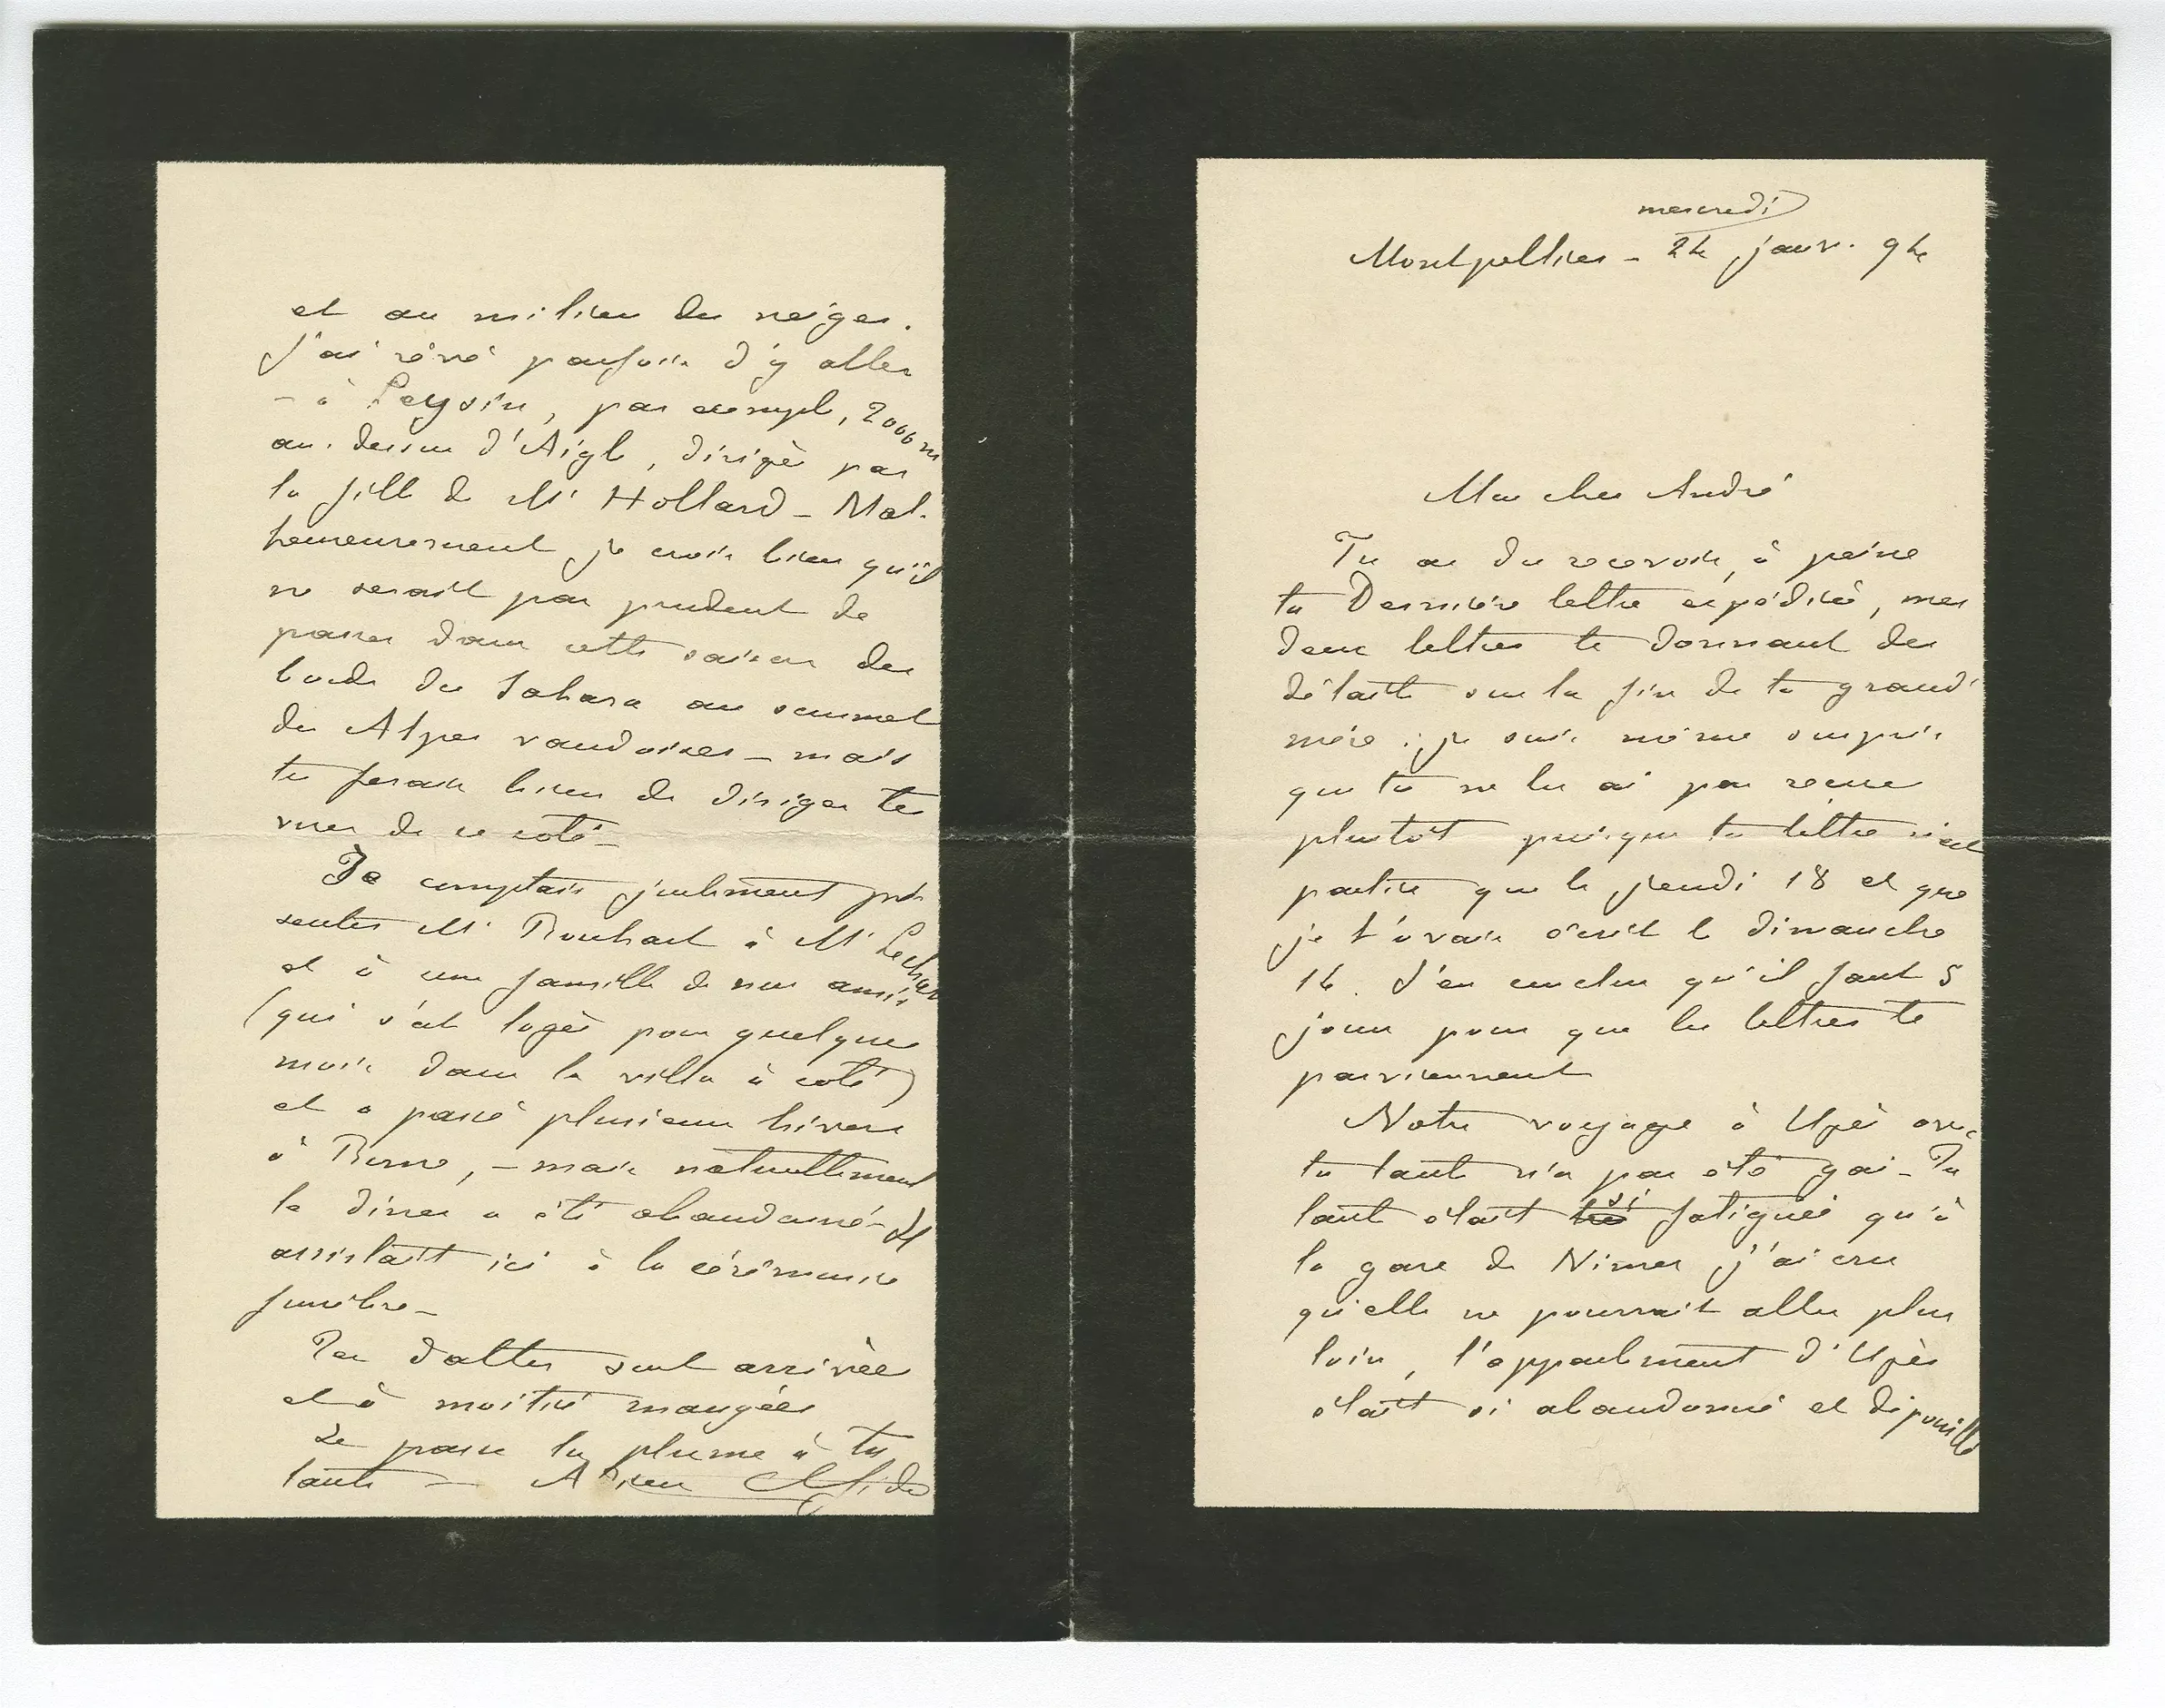 mercredi
Montpellier - 24 janv. 94
Mon cher André
Tu as du recevoir, à peine
ta Dernière lettre expédiée, mes
deux lettres te donnant des
détails sur la fin de ta grand'
mère ; je suis même surpris
que tu ne les ai pas reçues
plutôt puisque ta lettre n'est
partie que le jeudi 18 et que
je t'avais écrit le dimanche
14. J'en conclus qu'il faut 5
jours pour que les lettres te
parviennent
Notre voyage à Uzès avec
ta tante n'a pas été gai - Ta
tante était si fatiguée qu'à
la gare de Nimes j'ai cru
qu'elle ne pourrait aller plus
loin, l'appartement d'Uzès
était si abandonné et dépouillé
et au milieu des neiges.
J'ai rêvé parfois d'y aller
- à Leysin, par exemple, 2000 m
au-dessus d'Aigle, dirigé par
la fille de Mr Hollard - Mal-
heureusement je crois bien qu'il
ne serait pas prudent de
passer dans cette saison des
bords du Sahara au sommet
des Alpes vaudoises - mais
tu ferais bien de diriger tes
vues de ce coté -
Je comptais justement pré-
senter Mr Bonhard à Mr
et à une famille de nos amis
(qui s'est logée pour quelques
mois dans la villa à coté)
et a passé plusieurs hivers
à Rome, - mais naturellement
le diner a été abandonné - Il
assistait ici à la cérémonie
funèbre -
Tes dattes sont arrivées
et à moitié mangées
Je passe la plume à ta
tante - Adieu ChGide